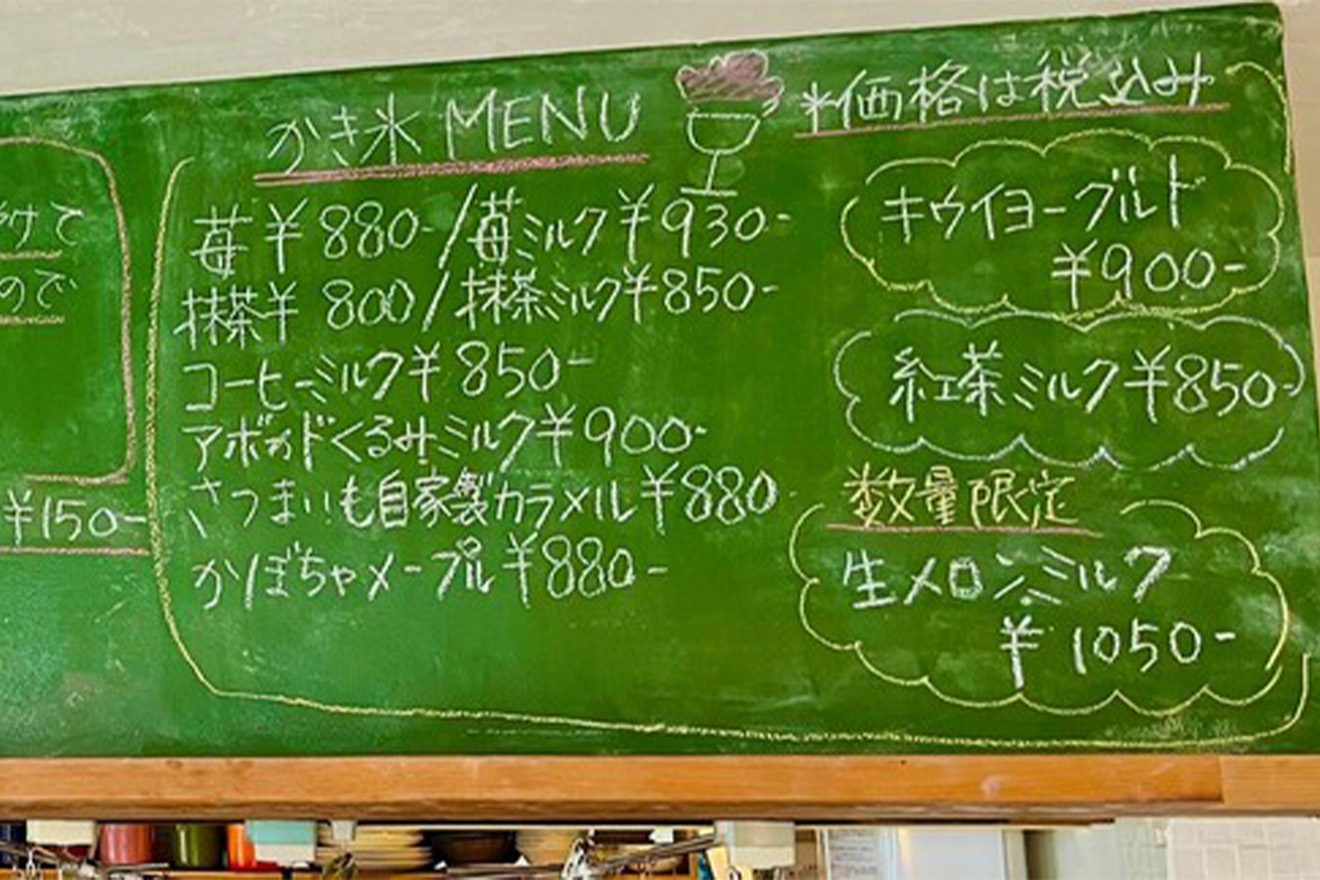 けて
ので
¥150-
かき氷 MENU
*価格は税込み
苺 ¥880-/苺ミルク¥930-
抹茶¥800/抹茶ミルク¥850-
コーヒーミルク¥850-
アボカドくるみミルク¥900-
さつまいも自家製カラメル¥880
かぼちゃメープル¥880-
キウイヨーグルト
¥900-
紅茶ミルク¥850-
数量限定
生メロンミルク
¥1050-